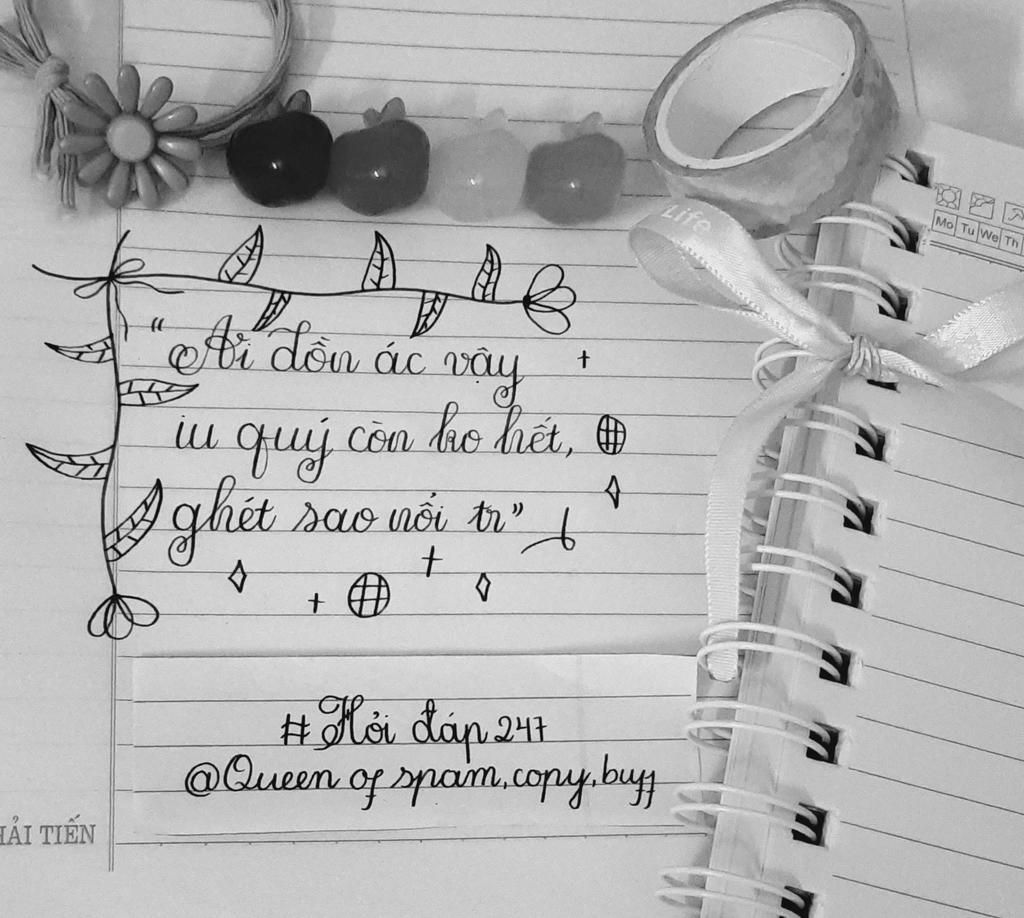 Life
Mo Tu We Th
“Ai đồn ác vậy
iu quý còn ko hết,
ghét sao nổi tr”
#Hỏi đáp 247
@Queen of spam, copy, buff
HẢI TIẾN